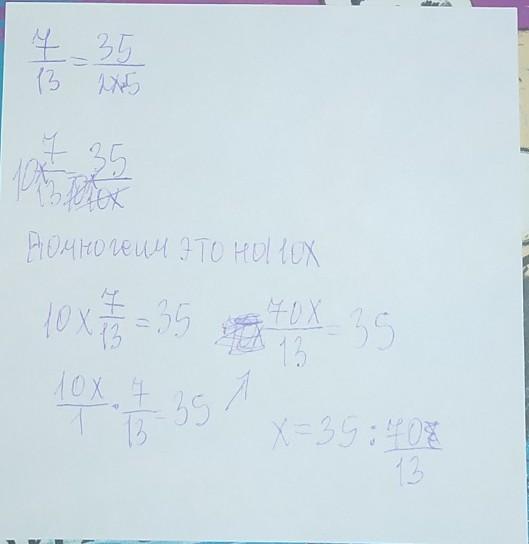 7/13 = 35/2x·5
10x 7/13 = 35/10x
Помножим это на 10x
10x 7/13 = 35
70x/13 = 35
10x/1 · 7/13 = 35
x = 35 : 70/13